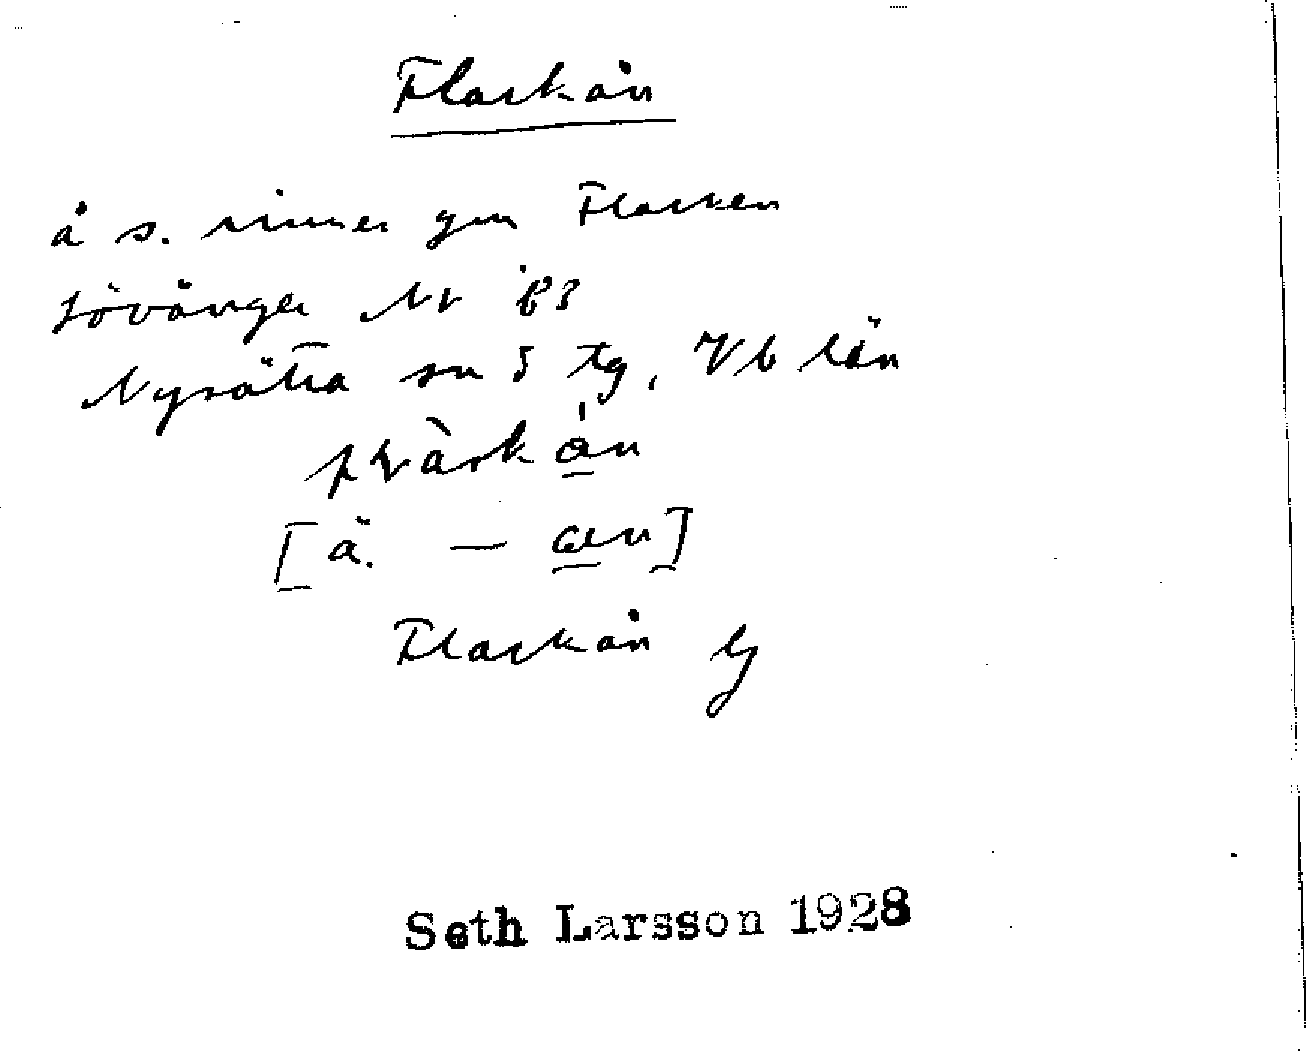 Flarkån
å s. rinner gm Flarken
Lövånger Nv B3
Nysätra sn 5 tg, Vb län
[ä. – æn]
Flarkån
Seth Larsson 1928